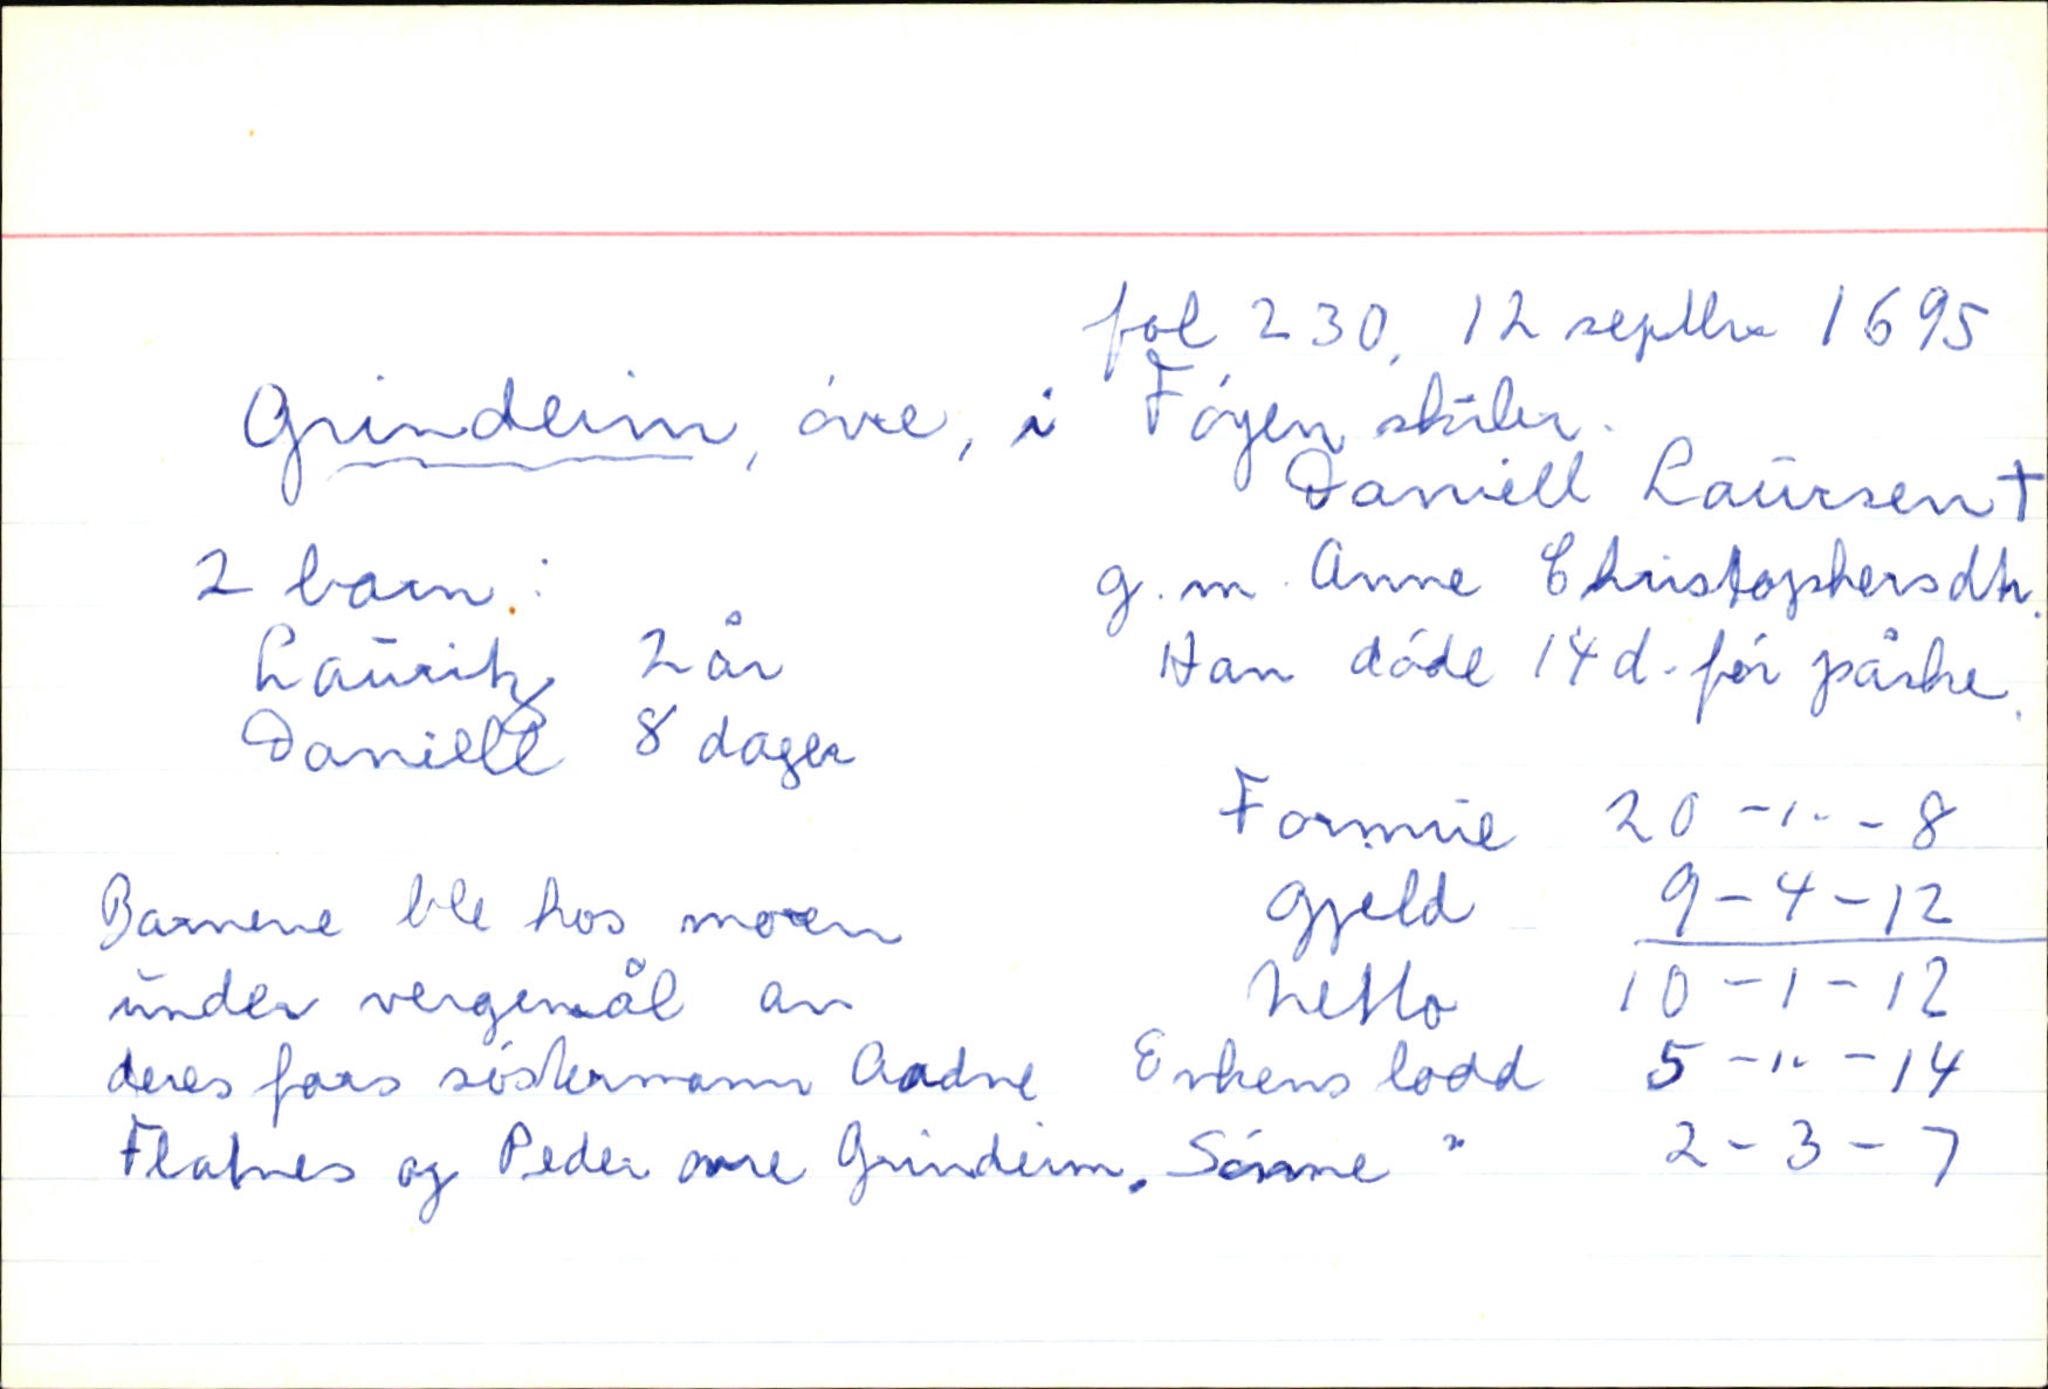 fol 230, 12 septbr 1695
Grindeim, óvre, i Føyen skibr.
Daniell Laursen †
2 barn:
g.m. Anne Christophersdtr.
Lauritz 2 år
Han døde 14 d. før påske.
Daniell 8 dager
Formue 20 - " - 8
Gjeld 9 - 4 - 12
Barnene ble hos moren
Netto 10 - 1 - 12
under vergemål av
deres fars søstermann Aadne
Enkens lodd 5 - " - 14
Flatnes og Peder øvre Grindeim.
Sønne " 2 - 3 - 7